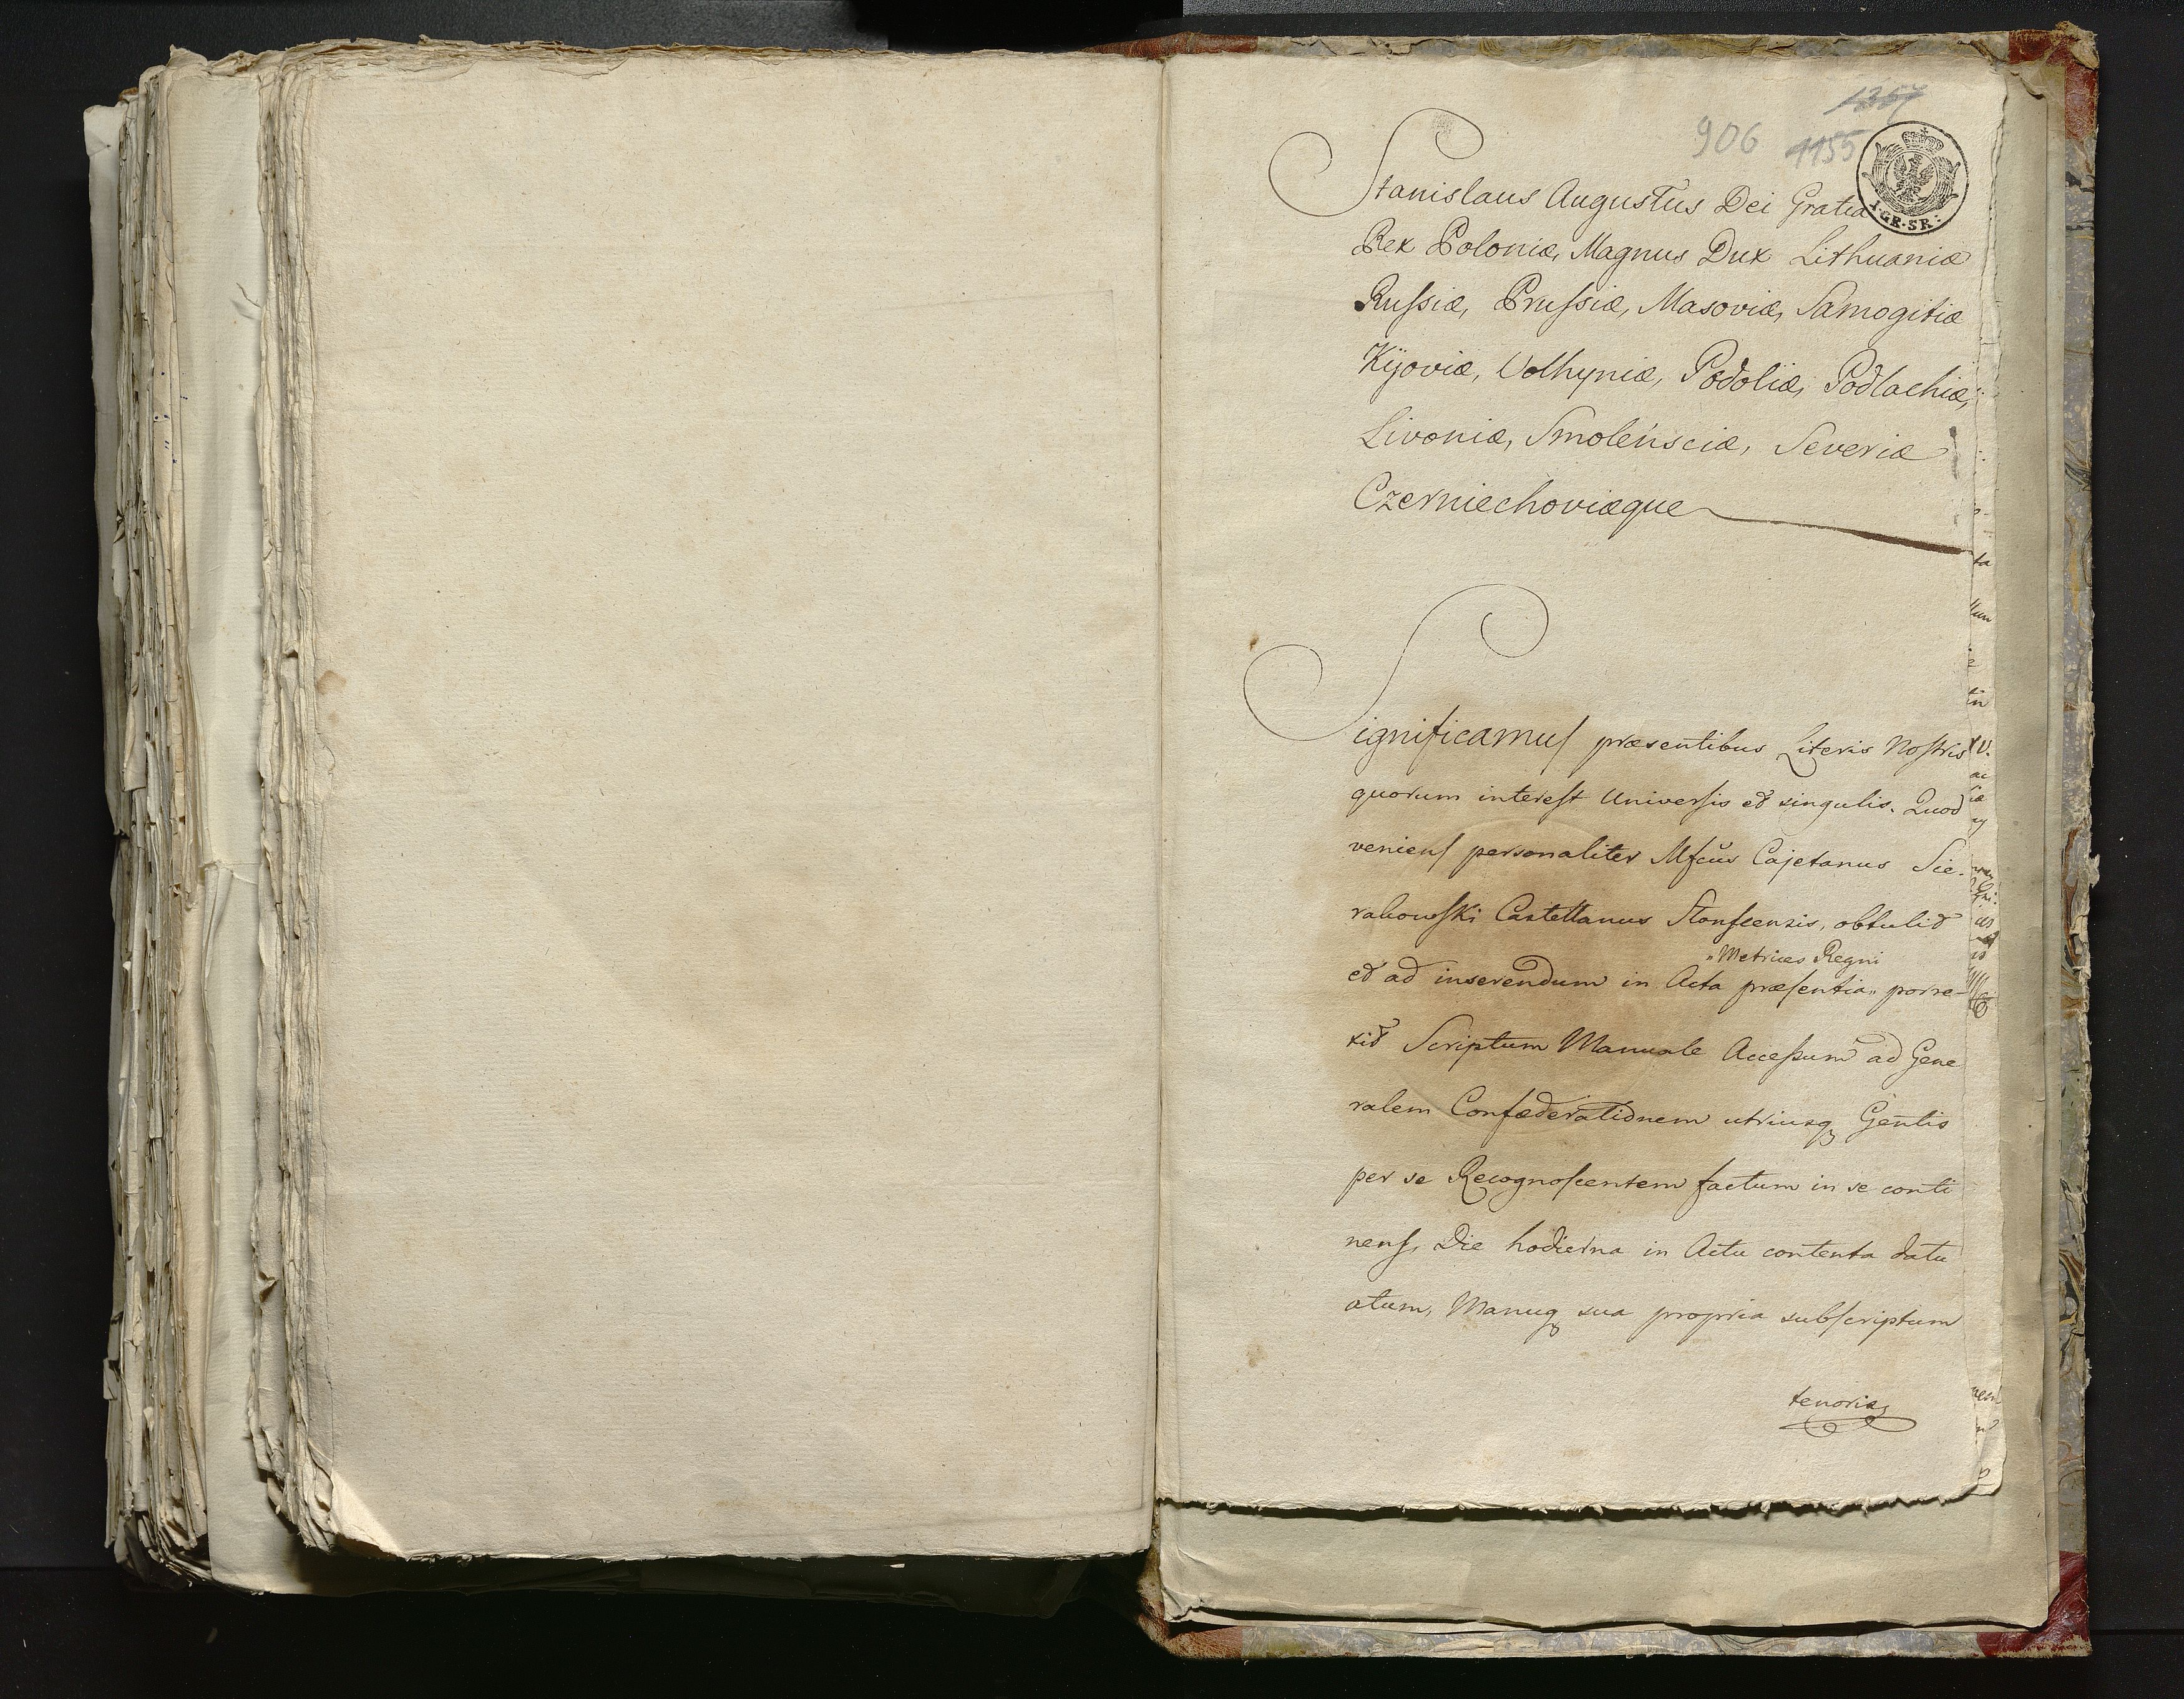 1257
906 1155
1·GR·SR:
Stanislaus Augustus Dei Gratia
Rex Poloniæ, Magnus Dux Lithuaniæ
Rußiæ, Prußiæ, Masoviæ, Samogitiæ
Kijoviæ, Volhyniæ, Podoliæ, Podlachiæ,
Livoniæ, Smolensciæ, Severiæ
Czerniechoviæque
Significamus præsentibus Literis Nostris
quorum interest Universis et singulis. Quod
veniens personaliter Mfcus Cajetanus Sie-
rakowski Castellanus Słonscensis, obtulit
"Metrices Regni
et ad inserendum in Acta præsentia" porre-
xit Scriptum Manuale Acceßum ad Gene
ralem Confæderationem utriusq Gentis
per se Recognoscentem factum in se conti
nens, Die hodierna in Actu contenta datu
atum, Manuq sua propria subscriptum
tenoris